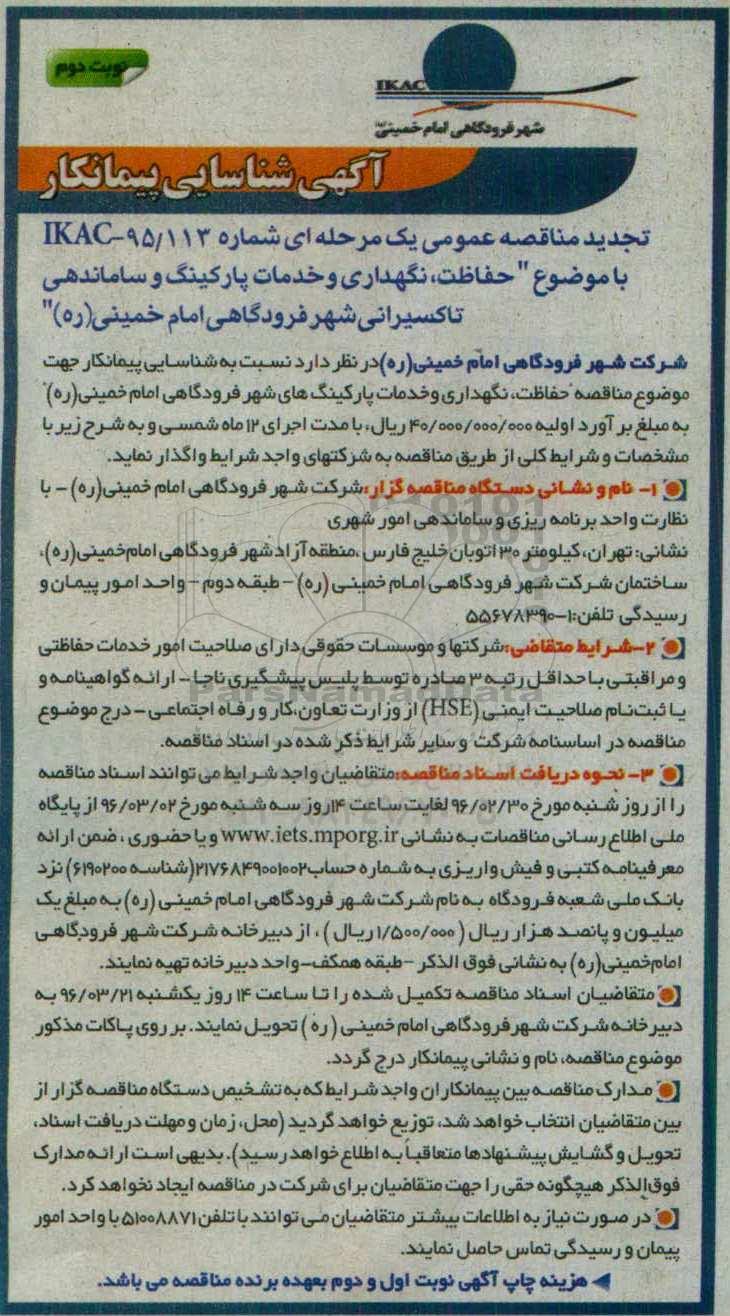 نوبت دوم
IKAC
شهر فرودگاهی امام خمینی(ره)
آگهی شناسایی پیمانکار
تجدید مناقصه عمومی یک مرحله ای شماره IKAC-۹۵/۱۱۳
با موضوع "حفاظت، نگهداری و خدمات پارکینگ و ساماندهی
تاکسیرانی شهر فرودگاهی امام خمینی(ره)"
شرکت شهر فرودگاهی امام خمینی(ره) در نظر دارد نسبت به شناسایی پیمانکار جهت
موضوع مناقصه "حفاظت، نگهداری و خدمات پارکینگ های شهر فرودگاهی امام خمینی(ره)"
به مبلغ بر آورد اولیه ۴۰/۰۰۰/۰۰۰/۰۰۰ ریال، با مدت اجرای ۱۲ ماه شمسی و به شرح زیر با
مشخصات و شرایط کلی از طریق مناقصه به شرکتهای واجد شرایط واگذار نماید.
۱- نام و نشانی دستگاه مناقصه گزار: شرکت شهر فرودگاهی امام خمینی(ره) - با
نظارت واحد برنامه ریزی و ساماندهی امور شهری
نشانی: تهران، کیلومتر ۳۰ اتوبان خلیج فارس، منطقه آزاد شهر فرودگاهی امام خمینی(ره)،
ساختمان شرکت شهر فرودگاهی امام خمینی (ره) - طبقه دوم - واحد امور پیمان و
رسیدگی تلفن: ۱-۵۵۶۷۸۳۹۰
۲- شرایط متقاضی: شرکتها و موسسات حقوقی دارای صلاحیت امور خدمات حفاظتی
و مراقبتی با حداقل رتبه ۳ صادره توسط پلیس پیشگیری ناجا - ارائه گواهینامه و
یا ثبت نام صلاحیت ایمنی (HSE) از وزارت تعاون، کار و رفاه اجتماعی - درج موضوع
مناقصه در اساسنامه شرکت و سایر شرایط ذکر شده در اسناد مناقصه.
۳- نحوه دریافت اسناد مناقصه: متقاضیان واجد شرایط می توانند اسناد مناقصه
را از روز شنبه مورخ ۹۶/۰۲/۳۰ لغایت ساعت ۱۴ روز سه شنبه مورخ ۹۶/۰۳/۰۲ از پایگاه
ملی اطلاع رسانی مناقصات به نشانی www.iets.mporg.ir و یا حضوری، ضمن ارائه
معرفینامه کتبی و فیش واریزی به شماره حساب ۲۱۷۶۸۴۹۰۰۱۰۰۲ (شناسه ۶۱۹۰۲۰۰) نزد
بانک ملی شعبه فرودگاه به نام شرکت شهر فرودگاهی امام خمینی (ره) به مبلغ یک
میلیون و پانصد هزار ریال (۱/۵۰۰/۰۰۰ ریال)، از دبیرخانه شرکت شهر فرودگاهی
امام خمینی(ره) به نشانی فوق الذکر - طبقه همکف - واحد دبیرخانه تهیه نمایند.
متقاضیان اسناد مناقصه تکمیل شده را تا ساعت ۱۴ روز یکشنبه ۹۶/۰۳/۲۱ به
دبیرخانه شرکت شهر فرودگاهی امام خمینی (ره) تحویل نمایند. بر روی پاکات مذکور
موضوع مناقصه، نام و نشانی پیمانکار درج گردد.
مدارک مناقصه بین پیمانکاران واجد شرایط که به تشخیص دستگاه مناقصه گزار از
بین متقاضیان انتخاب خواهد شد، توزیع خواهد گردید (محل، زمان و مهلت دریافت اسناد،
تحویل و گشایش پیشنهادها متعاقباً به اطلاع خواهد رسید). بدیهی است ارائه مدارک
فوق الذکر هیچگونه حقی را جهت متقاضیان برای شرکت در مناقصه ایجاد نخواهد کرد.
در صورت نیاز به اطلاعات بیشتر متقاضیان می توانند با تلفن ۵۱۰۰۸۸۷۱ با واحد امور
پیمان و رسیدگی تماس حاصل نمایند.
هزینه چاپ آگهی نوبت اول و دوم بعهده برنده مناقصه می باشد.
ParsNamadData